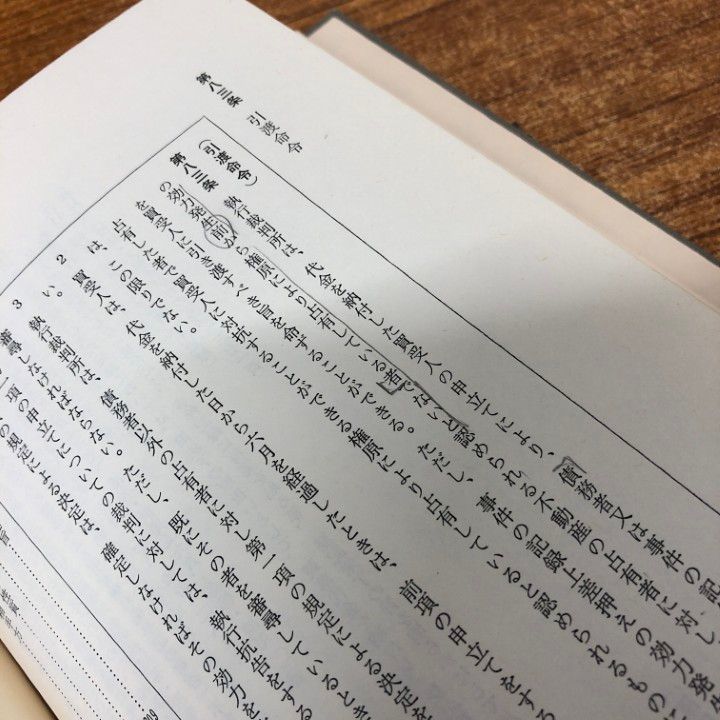 第八三条　引渡命令
（引渡命令）
第八三条　執行裁判所は、代金を納付した買受人の申立てにより、債務者又は事件の記
の効力発生前から権原により占有している者でないと認められる不動産の占有者に対し
を買受人に引き渡すべき旨を命ずることができる。ただし、事件の記録上差押えの効力発
占有した者で買受人に対抗することができる権原により占有していると認められるもの
は、この限りでない。
2　買受人は、代金を納付した日から六月を経過したときは、前項の申立てをする
い。
3　執行裁判所は、債務者以外の占有者に対し第一項の規定による決定を
審尋しなければならない。ただし、既にその者を審尋しているとき
項の申立てについての裁判に対しては、執行抗告をする
の規定による決定は、確定しなければその効力を